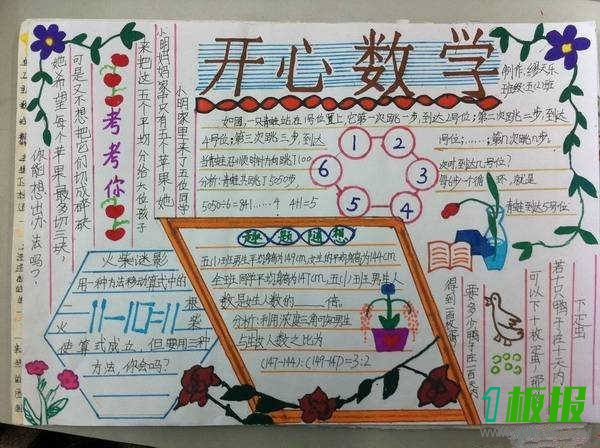 开心数学
制作:缪天乐
班级:五(2)班
如图,一只青蛙站在1号位置上,它第一次跳一步,到达2号位;第二次跳二步,到达
4号位;第三次跳三步,到达1号位;……;第n次跳n步。
当青蛙沿顺时针方向跳了100次时,到达几号位?
分析:青蛙共跳了5050步,每6步一个循环,就是
5050÷6=841……4 4+1=5
青蛙到达5号位
1
2
3
4
5
6
考考你
小明家里来了五位同学
小明妈妈家中只有五个苹果,她
来把这五个平均分给六位孩子
可是又不想把它们切成碎块
她希望每个苹果最多切三块,
你能想出办法吗?
火柴谜影
用一种方法移动算式中的
火柴
11-10=11
使算式成立,但要用三种
方法,你会吗?
趣题遐想
五(1)班男生平均身高为149cm,女生的平均身高为144cm
全班同学平均身高为147cm,五(1)班男生人
数是女生人数的____倍。
分析:利用浓度三角可知男生
与女生人数之比为
(147-144):(149-147)=3:2
下蛋
若十只鸭子在十天内
可以下十枚蛋,那
要多少鸭子在一百天内
得到一百枚蛋?
1板报